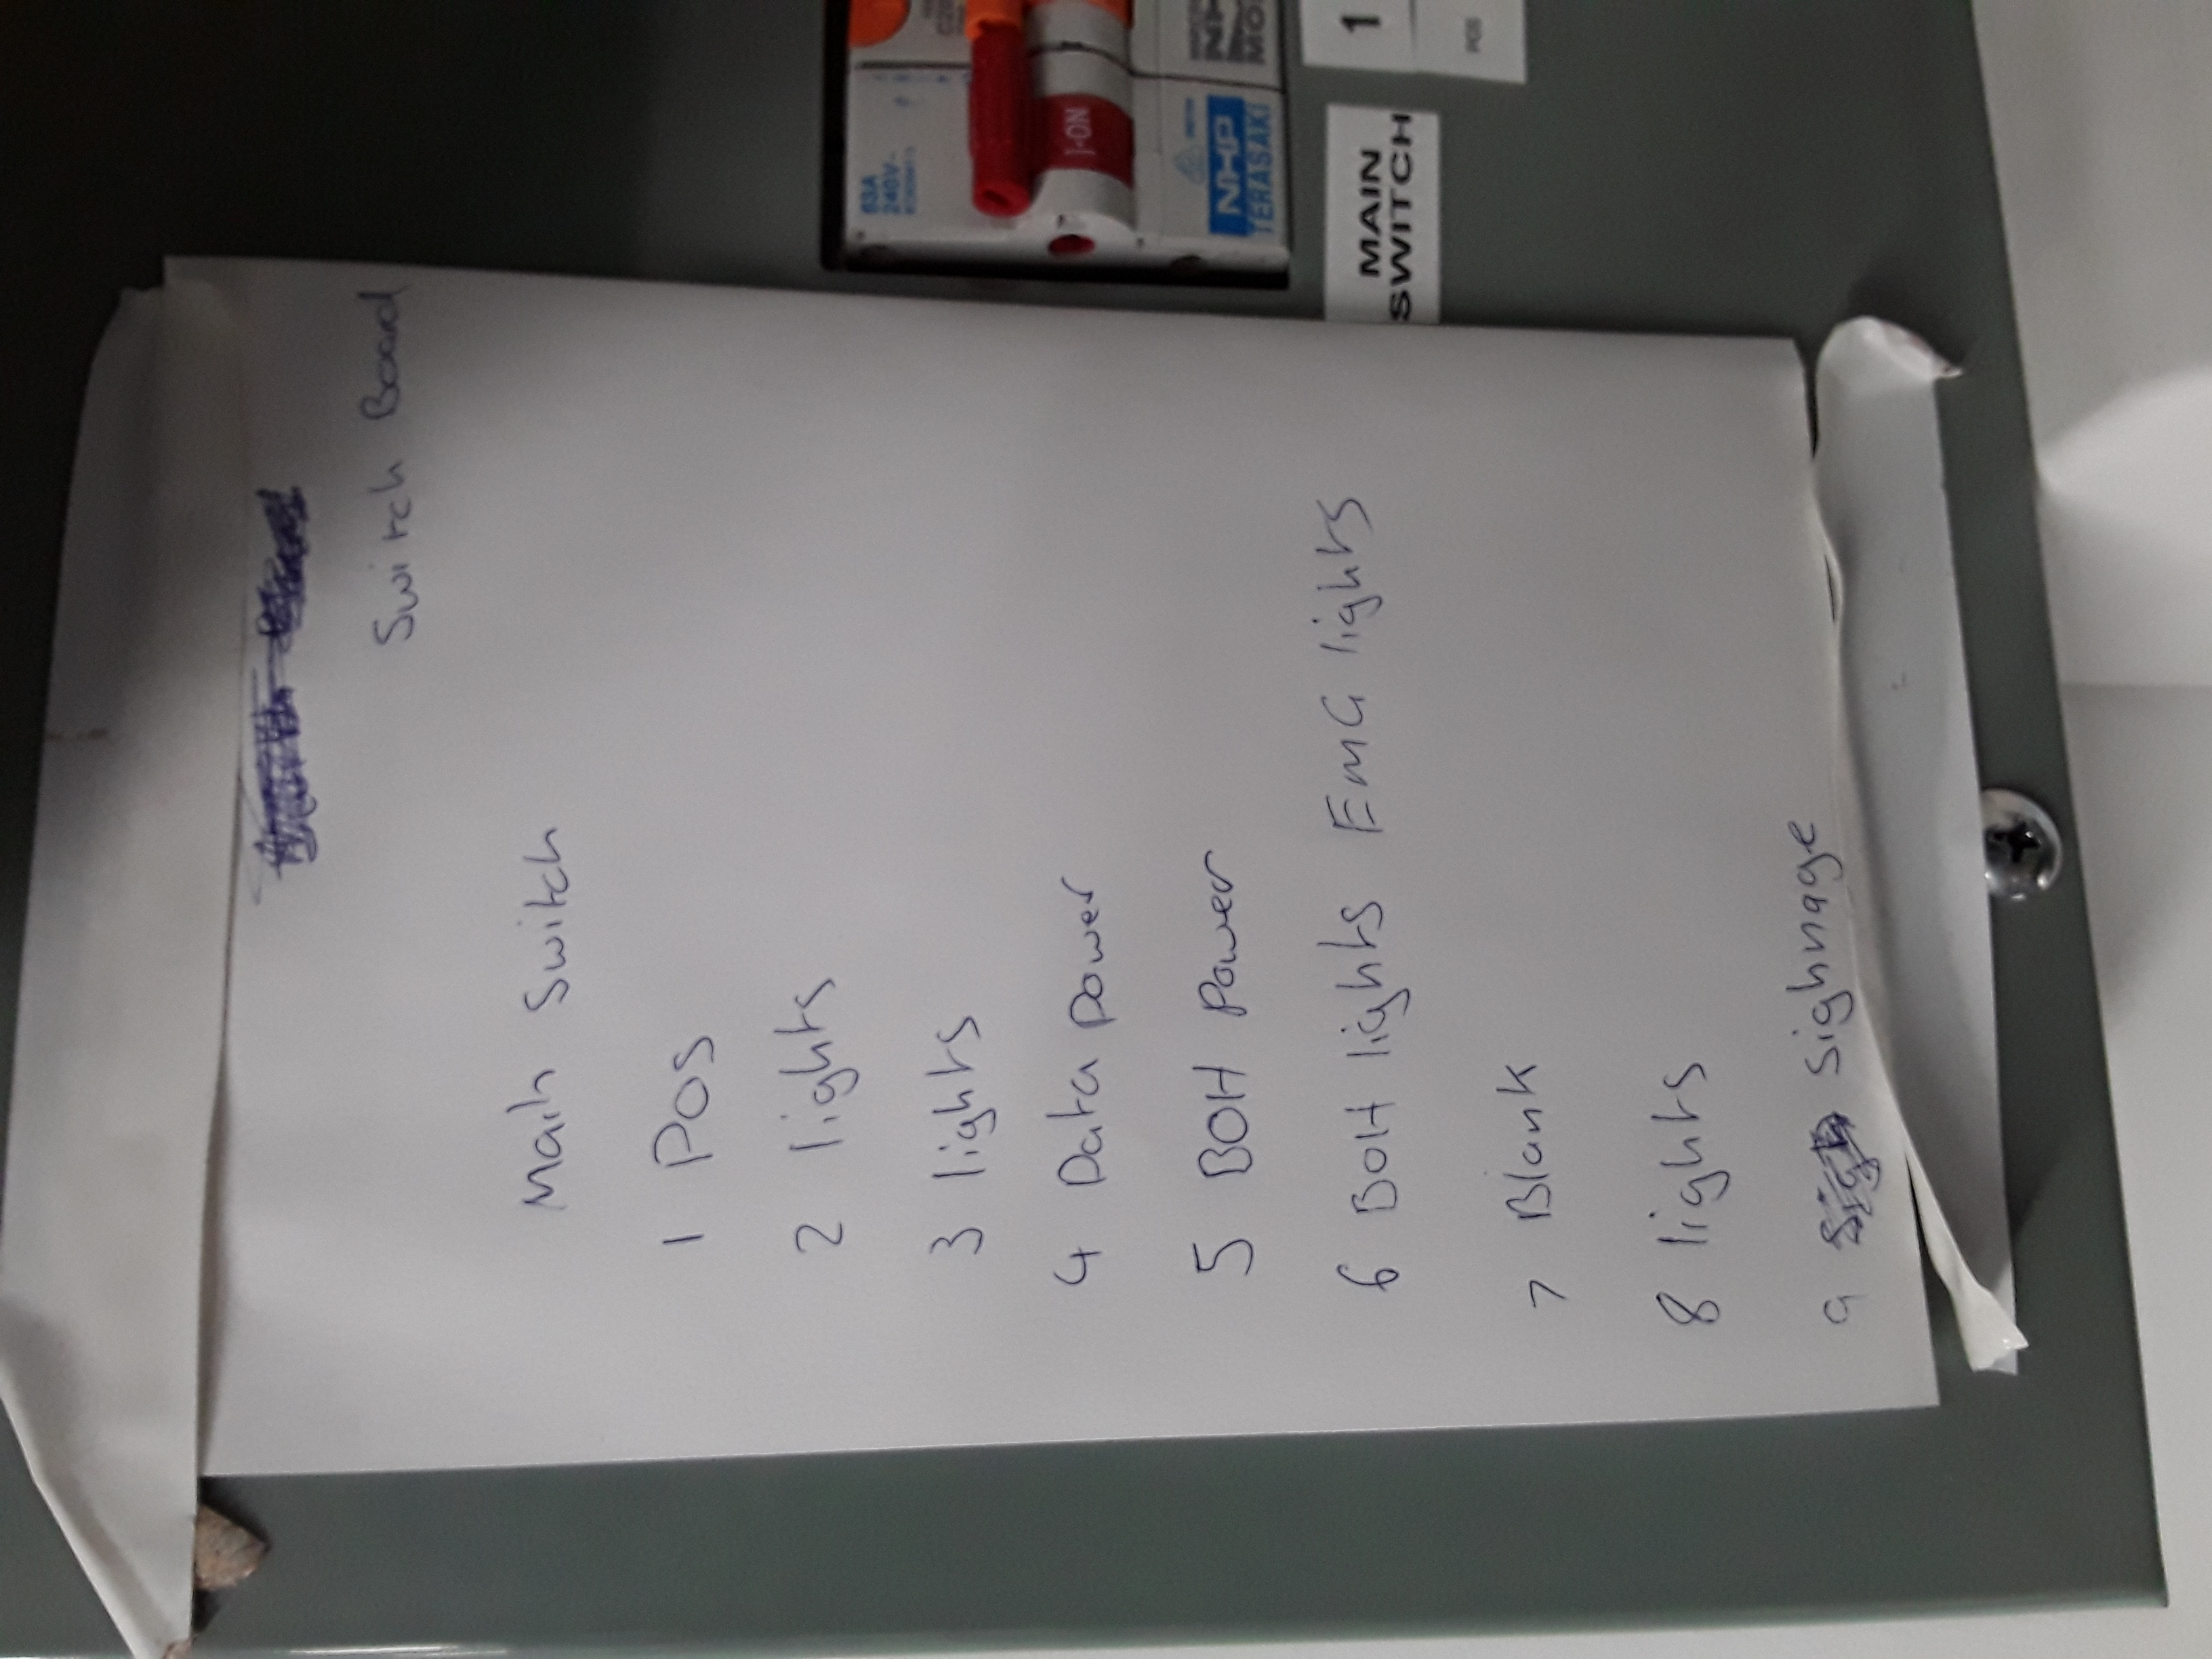 Switch Board
Main Switch
1 POS
2 lights
3 lights
4 Data power
5 BOH Power
6 BOH lights EmG lights
7 Blank
8 lights
9 sighnage
MAIN
SWITCH
1
POS
63A
240V~
I-ON
NHP
TERASAKI